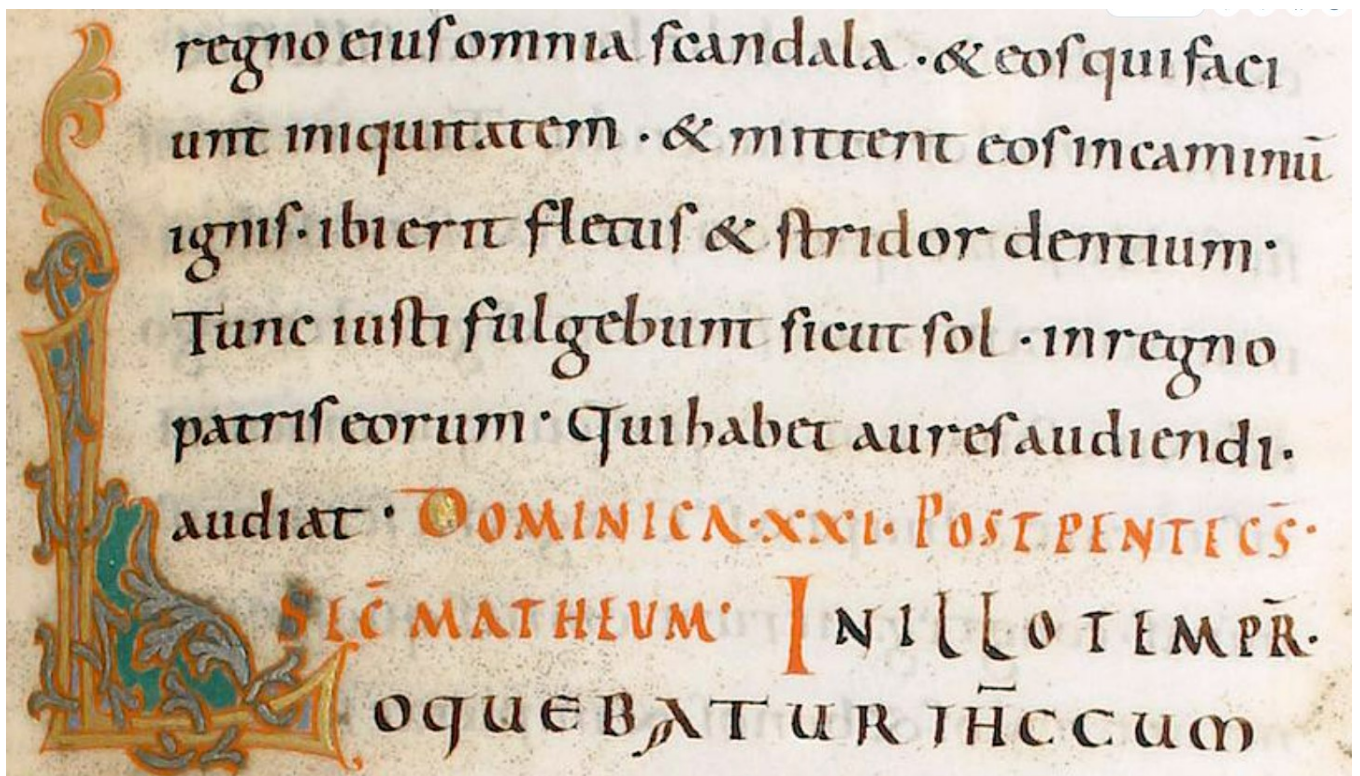 regno eiuſ omnia ſcandala · & eoſ qui faci
unt iniquitatem · & mittent eoſ in caminū
igniſ · ibi erit fletuſ & ſtridor dentium ·
Tunc iuſti fulgebunt ſicut ſol · in regno
patriſ eorum · Qui habet aureſ audiendi ·
audiat · DOMINICA · XXI · POST PENTECS̄ ·
SEC̄ MATHEUM · IN ILLO TEMPR̄ ·
LOQUEBATUR IH̄C CUM